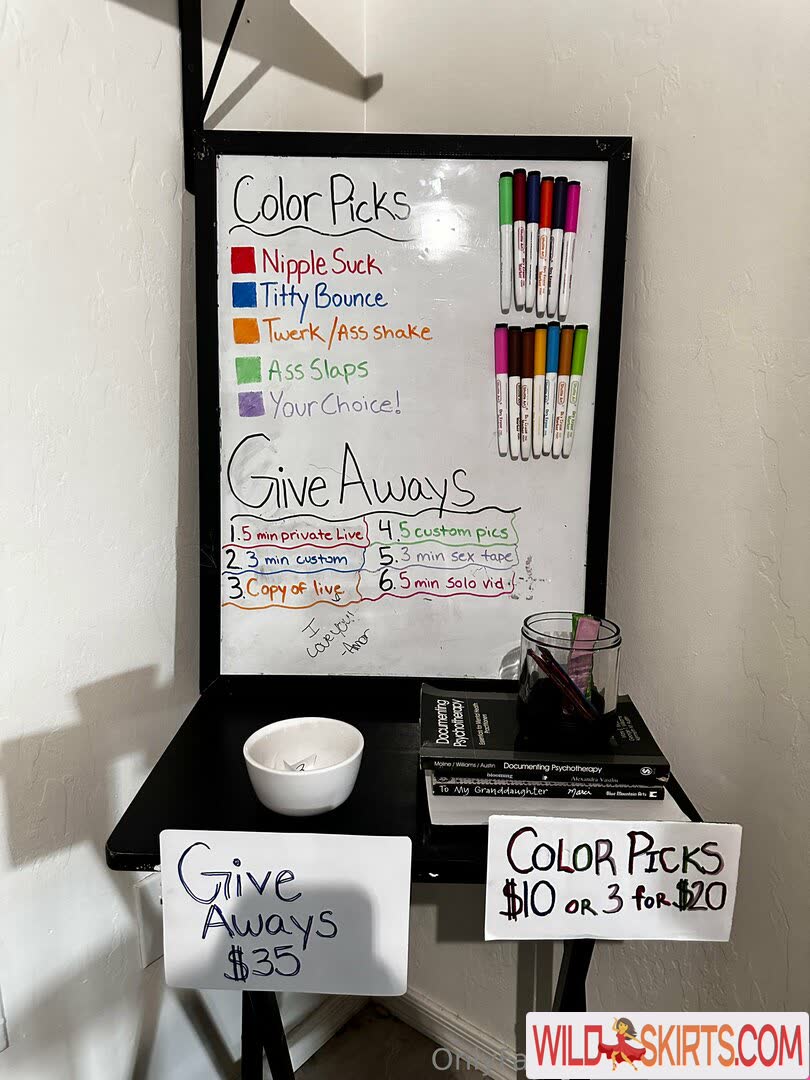 Color Picks
Nipple Suck
Titty Bounce
Twerk/Ass shake
Ass Slaps
Your Choice!
Give Aways
1. 5 min private Live
2. 3 min custom
3. Copy of live
4. 5 custom pics
5. 3 min sex tape
6. 5 min solo vid
I
Love You!!
-Amor
Documenting
Psychotherapy
Essentials for Mental Health
Practitioners
Moline / Williams / Austin Documenting Psychotherapy
blooming Alexandra Vasiliu
To My Granddaughter Marci Blue Mountain Arts
Give
Aways
$35
COLOR PICKS
$10 OR 3 for $20
WILDSKIRTS.COM